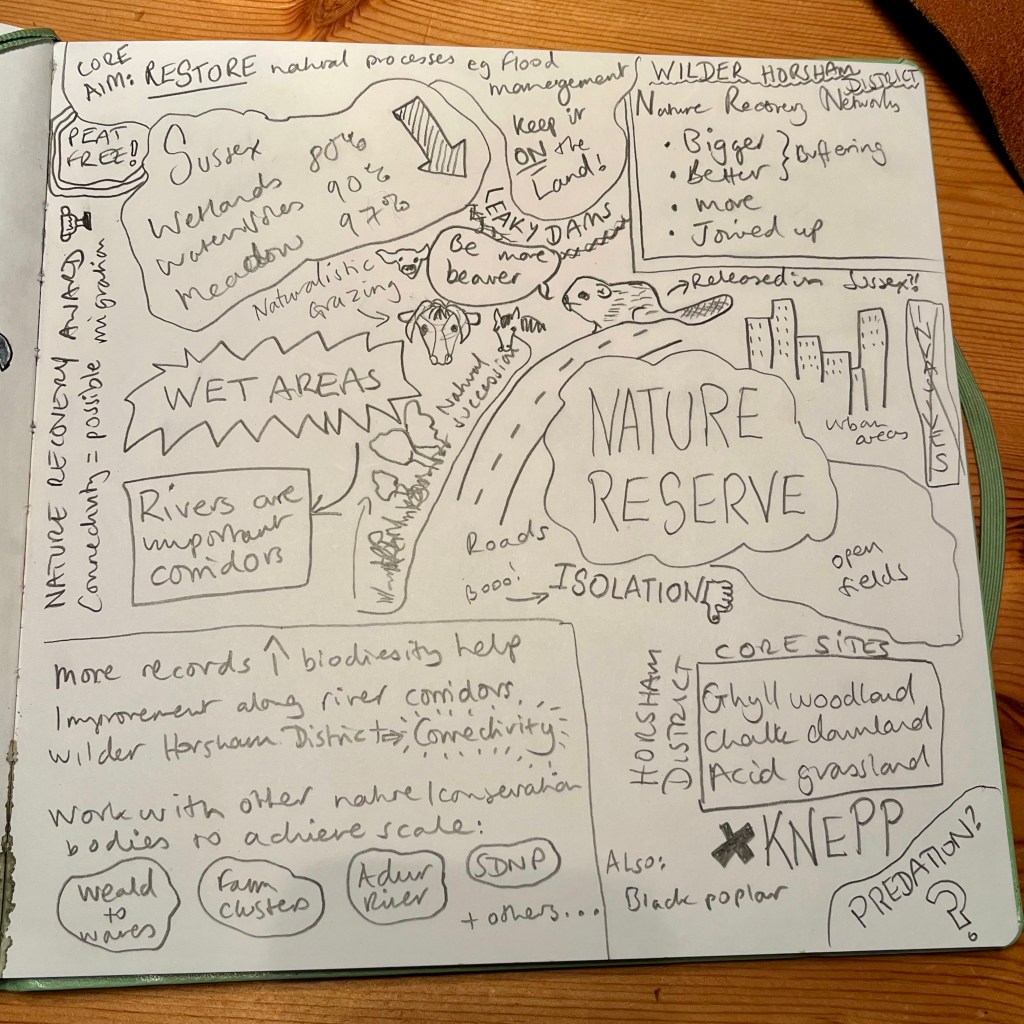 CORE
AIM: RESTORE natural processes eg flood
management
Keep it
ON the
Land!
PEAT
FREE!
Sussex
Wetlands 80%
Watervoles 90%
Meadow 97%
WILDER HORSHAM
DISTRICT
Nature Recovery Networks
• Bigger
• Better } Buffering
• more
• Joined up
LEAKY DAMS
Be more
beaver
→ Released in Sussex?!
Naturalistic
Grazing
Natural
succession
NATURE RECOVERY AWARD
Connectivity = possible migration
WET AREAS
Rivers are
important
corridors
NATURE
RESERVE
urban
areas
Roads
Booo!
ISOLATION
open
fields
more records ↑ biodiesity help
Improvement along river corridors.
Wilder Horsham District ⇒ Connectivity
Work with other nature/conservation
bodies to achieve scale:
Weald
to
waves
Farm
clusters
Adur
River
SDNP
+ others...
HORSHAM
DISTRICT
CORE SITES
Ghyll woodland
Chalk downland
Acid grassland
KNEPP
Also:
Black poplar
PREDATION?
?